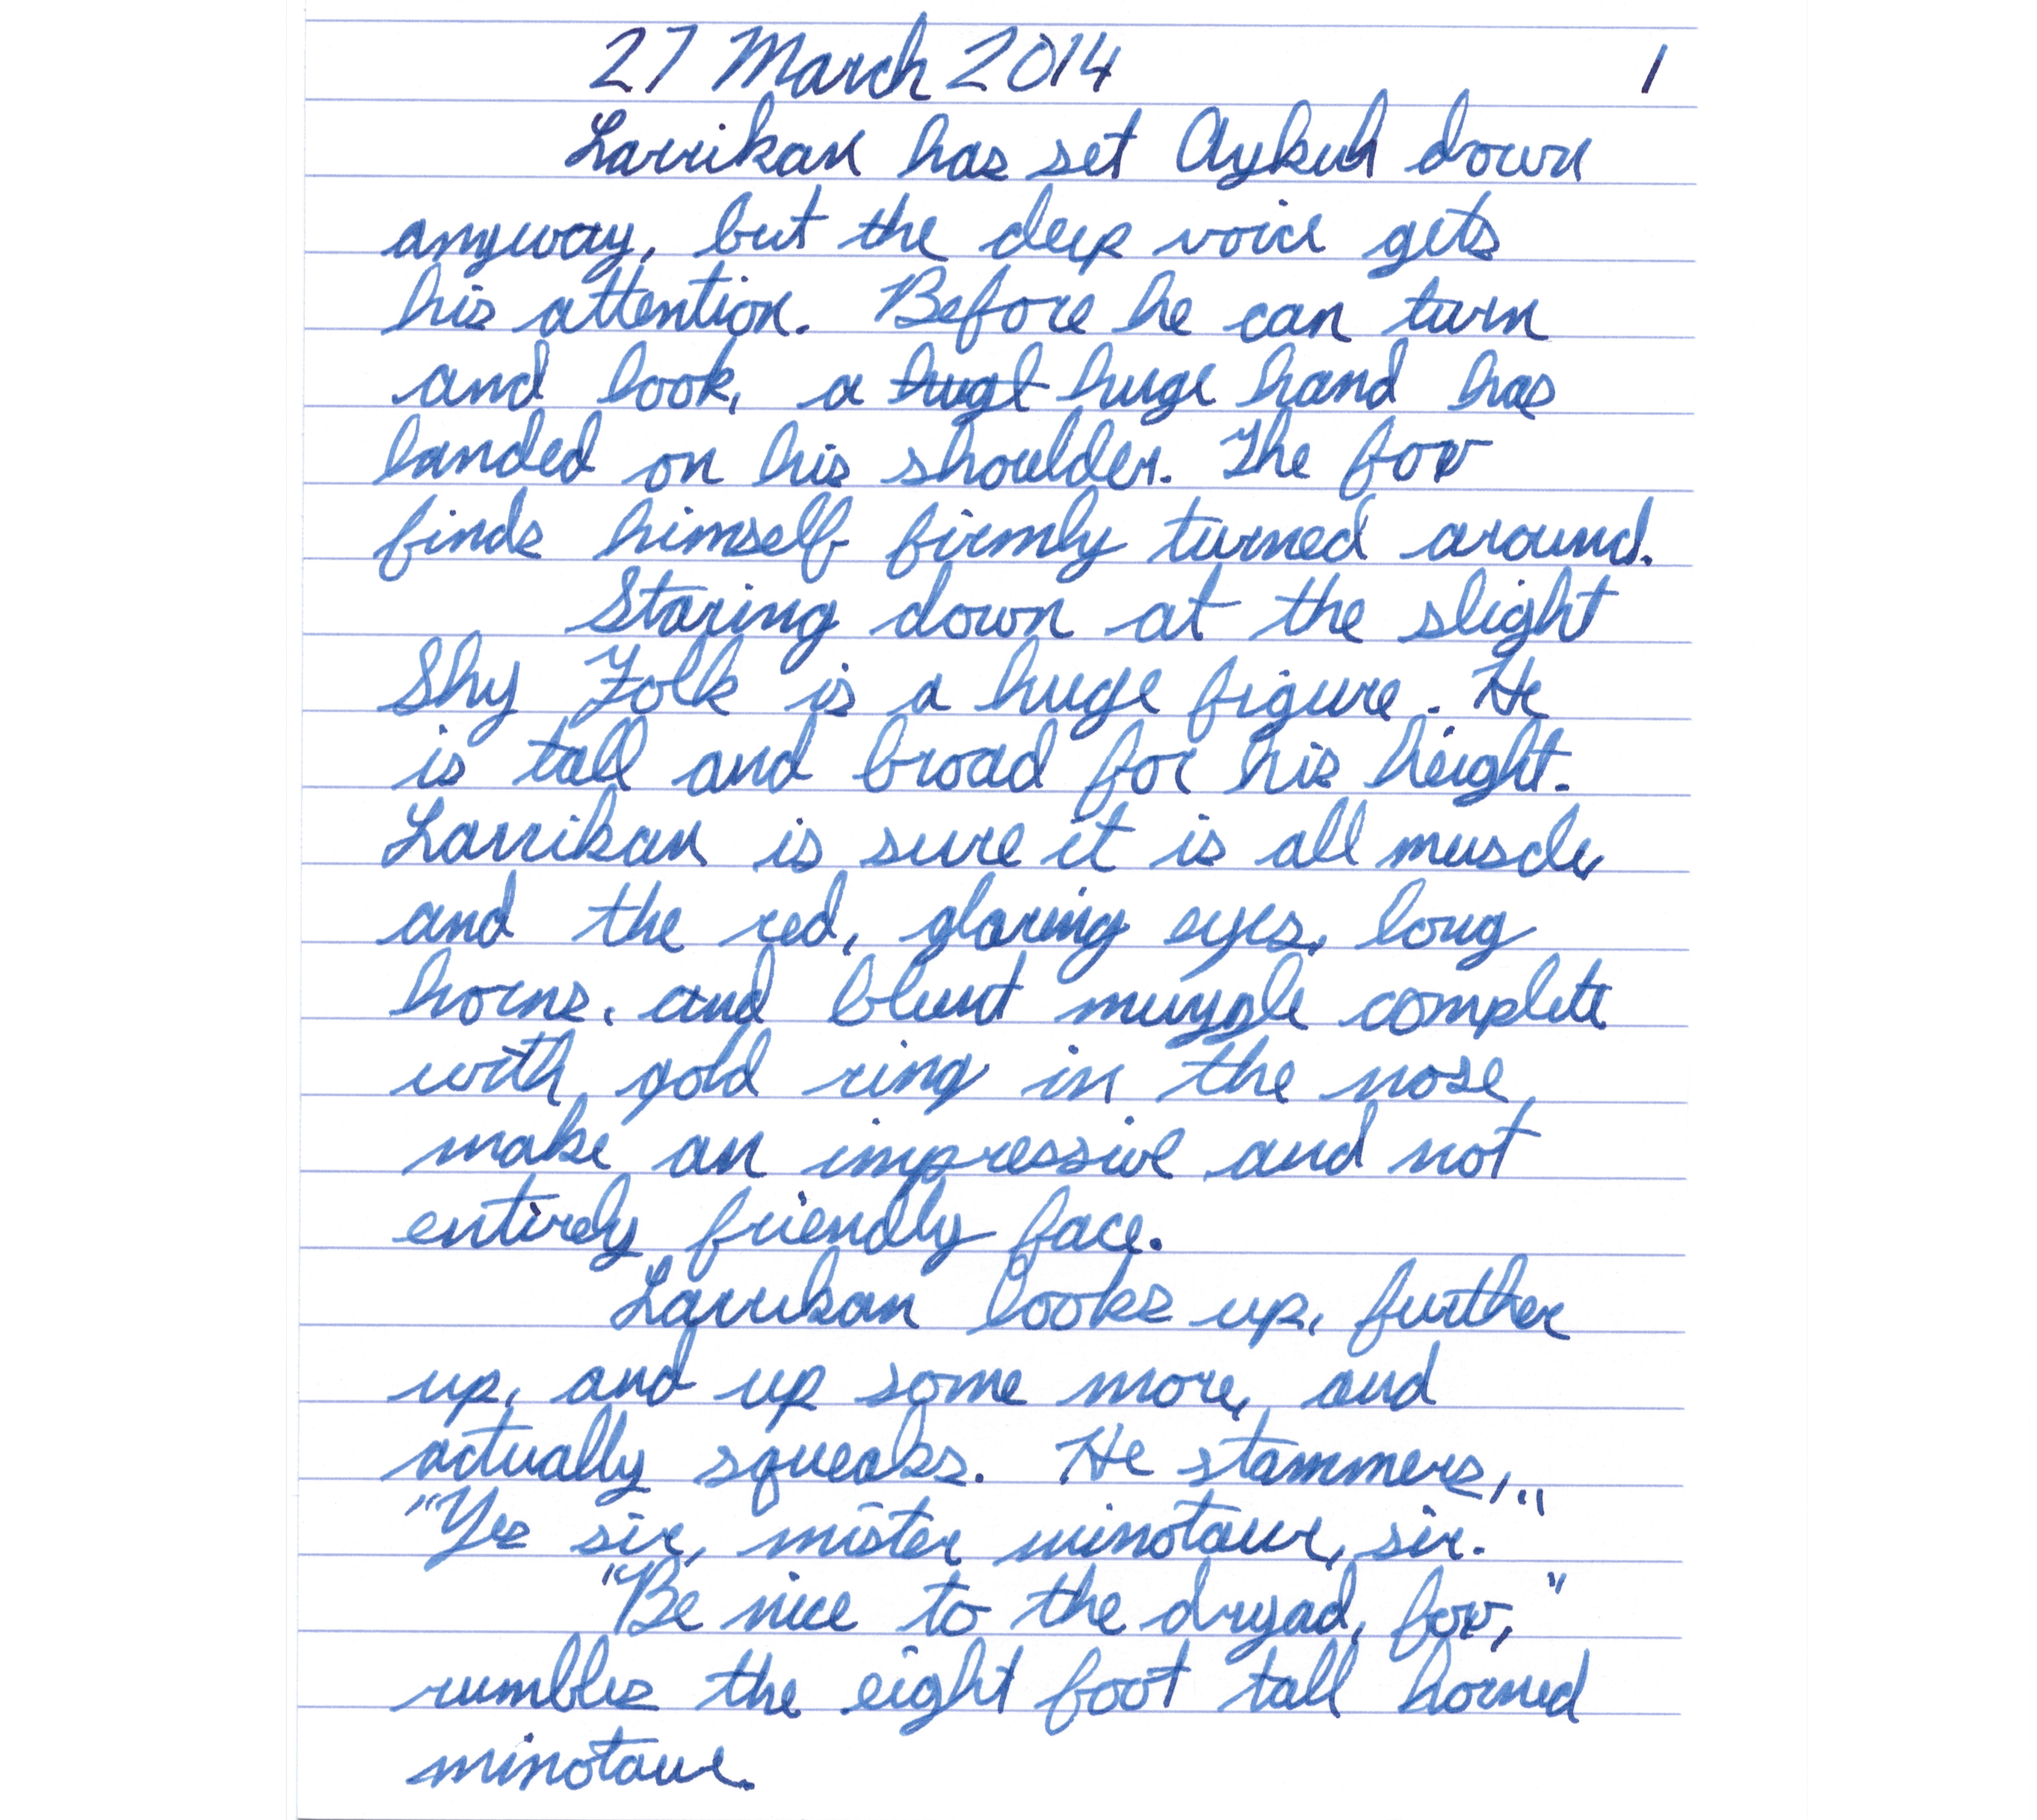 27 March 2014 1
Larrikan has set Aykuh down
anyway, but the deep voice gets
his attention. Before he can turn
and look, a hugt huge hand has
landed on his shoulder. The fov
finds himself firmly turned around.
Staring down at the slight
Shy Folk is a huge figure. He
is tall and broad for his height.
Larrikan is sure it is all muscle,
and the red, glaring eyes, long
horns, and blunt muzzle complete
with gold ring in the nose
make an impressive and not
entirely friendly face.
Larrikan looks up, further
up, and up some more, and
actually squeaks. He stammers,
"Yes sir, mister minotaur, sir."
"Be nice to the dryad, fov,"
rumbles the eight foot tall horned
minotaur.